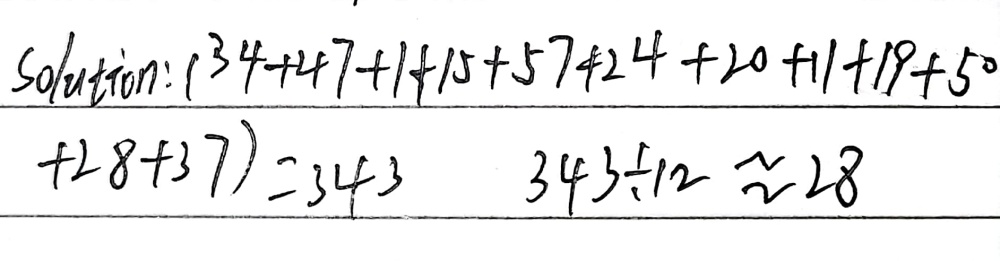 Solution: (34+47+1+15+57+24+20+11+19+50
+28+37)=343 343÷12≈28